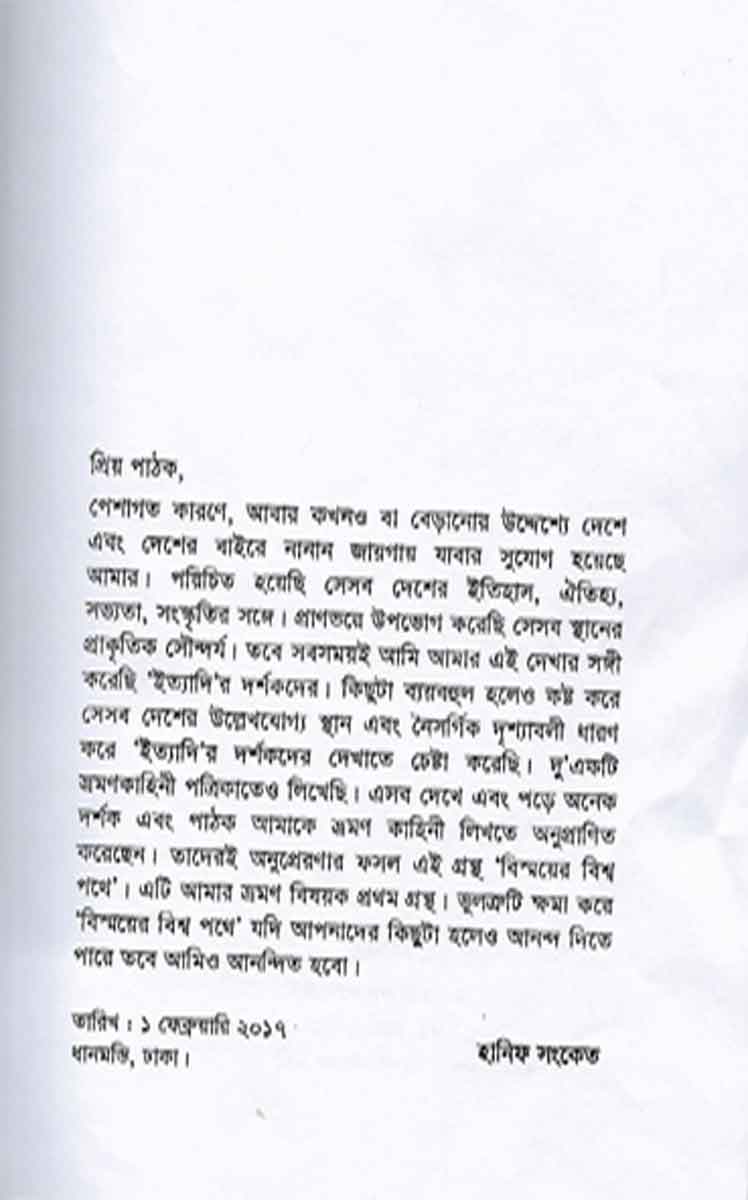 প্রিয় পাঠক,
পেশাগত কারণে, আবার কখনও বা বেড়ানোর উদ্দেশ্যে দেশে
এবং দেশের বাইরে নানান জায়গায় যাবার সুযোগ হয়েছে
আমার। পরিচিত হয়েছি সেসব দেশের ইতিহাস, ঐতিহ্য,
সভ্যতা, সংস্কৃতির সঙ্গে। প্রাণভরে উপভোগ করেছি সেসব স্থানের
প্রাকৃতিক সৌন্দর্য। তবে সবসময়ই আমি আমার এই দেখার সঙ্গী
করেছি ‘ইত্যাদি’র দর্শকদের। কিছুটা ব্যয়বহুল হলেও কষ্ট করে
সেসব দেশের উল্লেখযোগ্য স্থান এবং নৈসর্গিক দৃশ্যাবলী ধারণ
করে ‘ইত্যাদি’র দর্শকদের দেখাতে চেষ্টা করেছি। দু’একটি
ভ্রমণকাহিনী পত্রিকাতেও লিখেছি। এসব দেখে এবং পড়ে অনেক
দর্শক এবং পাঠক আমাকে ভ্রমণ কাহিনী লিখতে অনুপ্রাণিত
করেছেন। তাদেরই অনুপ্রেরণার ফসল এই গ্রন্থ ‘বিস্ময়ের বিশ্ব
পথে’। এটি আমার ভ্রমণ বিষয়ক প্রথম গ্রন্থ। ভুলত্রুটি ক্ষমা করে
‘বিস্ময়ের বিশ্ব পথে’ যদি আপনাদের কিছুটা হলেও আনন্দ দিতে
পারে তবে আমিও আনন্দিত হবো।
তারিখ : ১ ফেব্রুয়ারি ২০১৭
ধানমন্ডি, ঢাকা।
হানিফ সংকেত